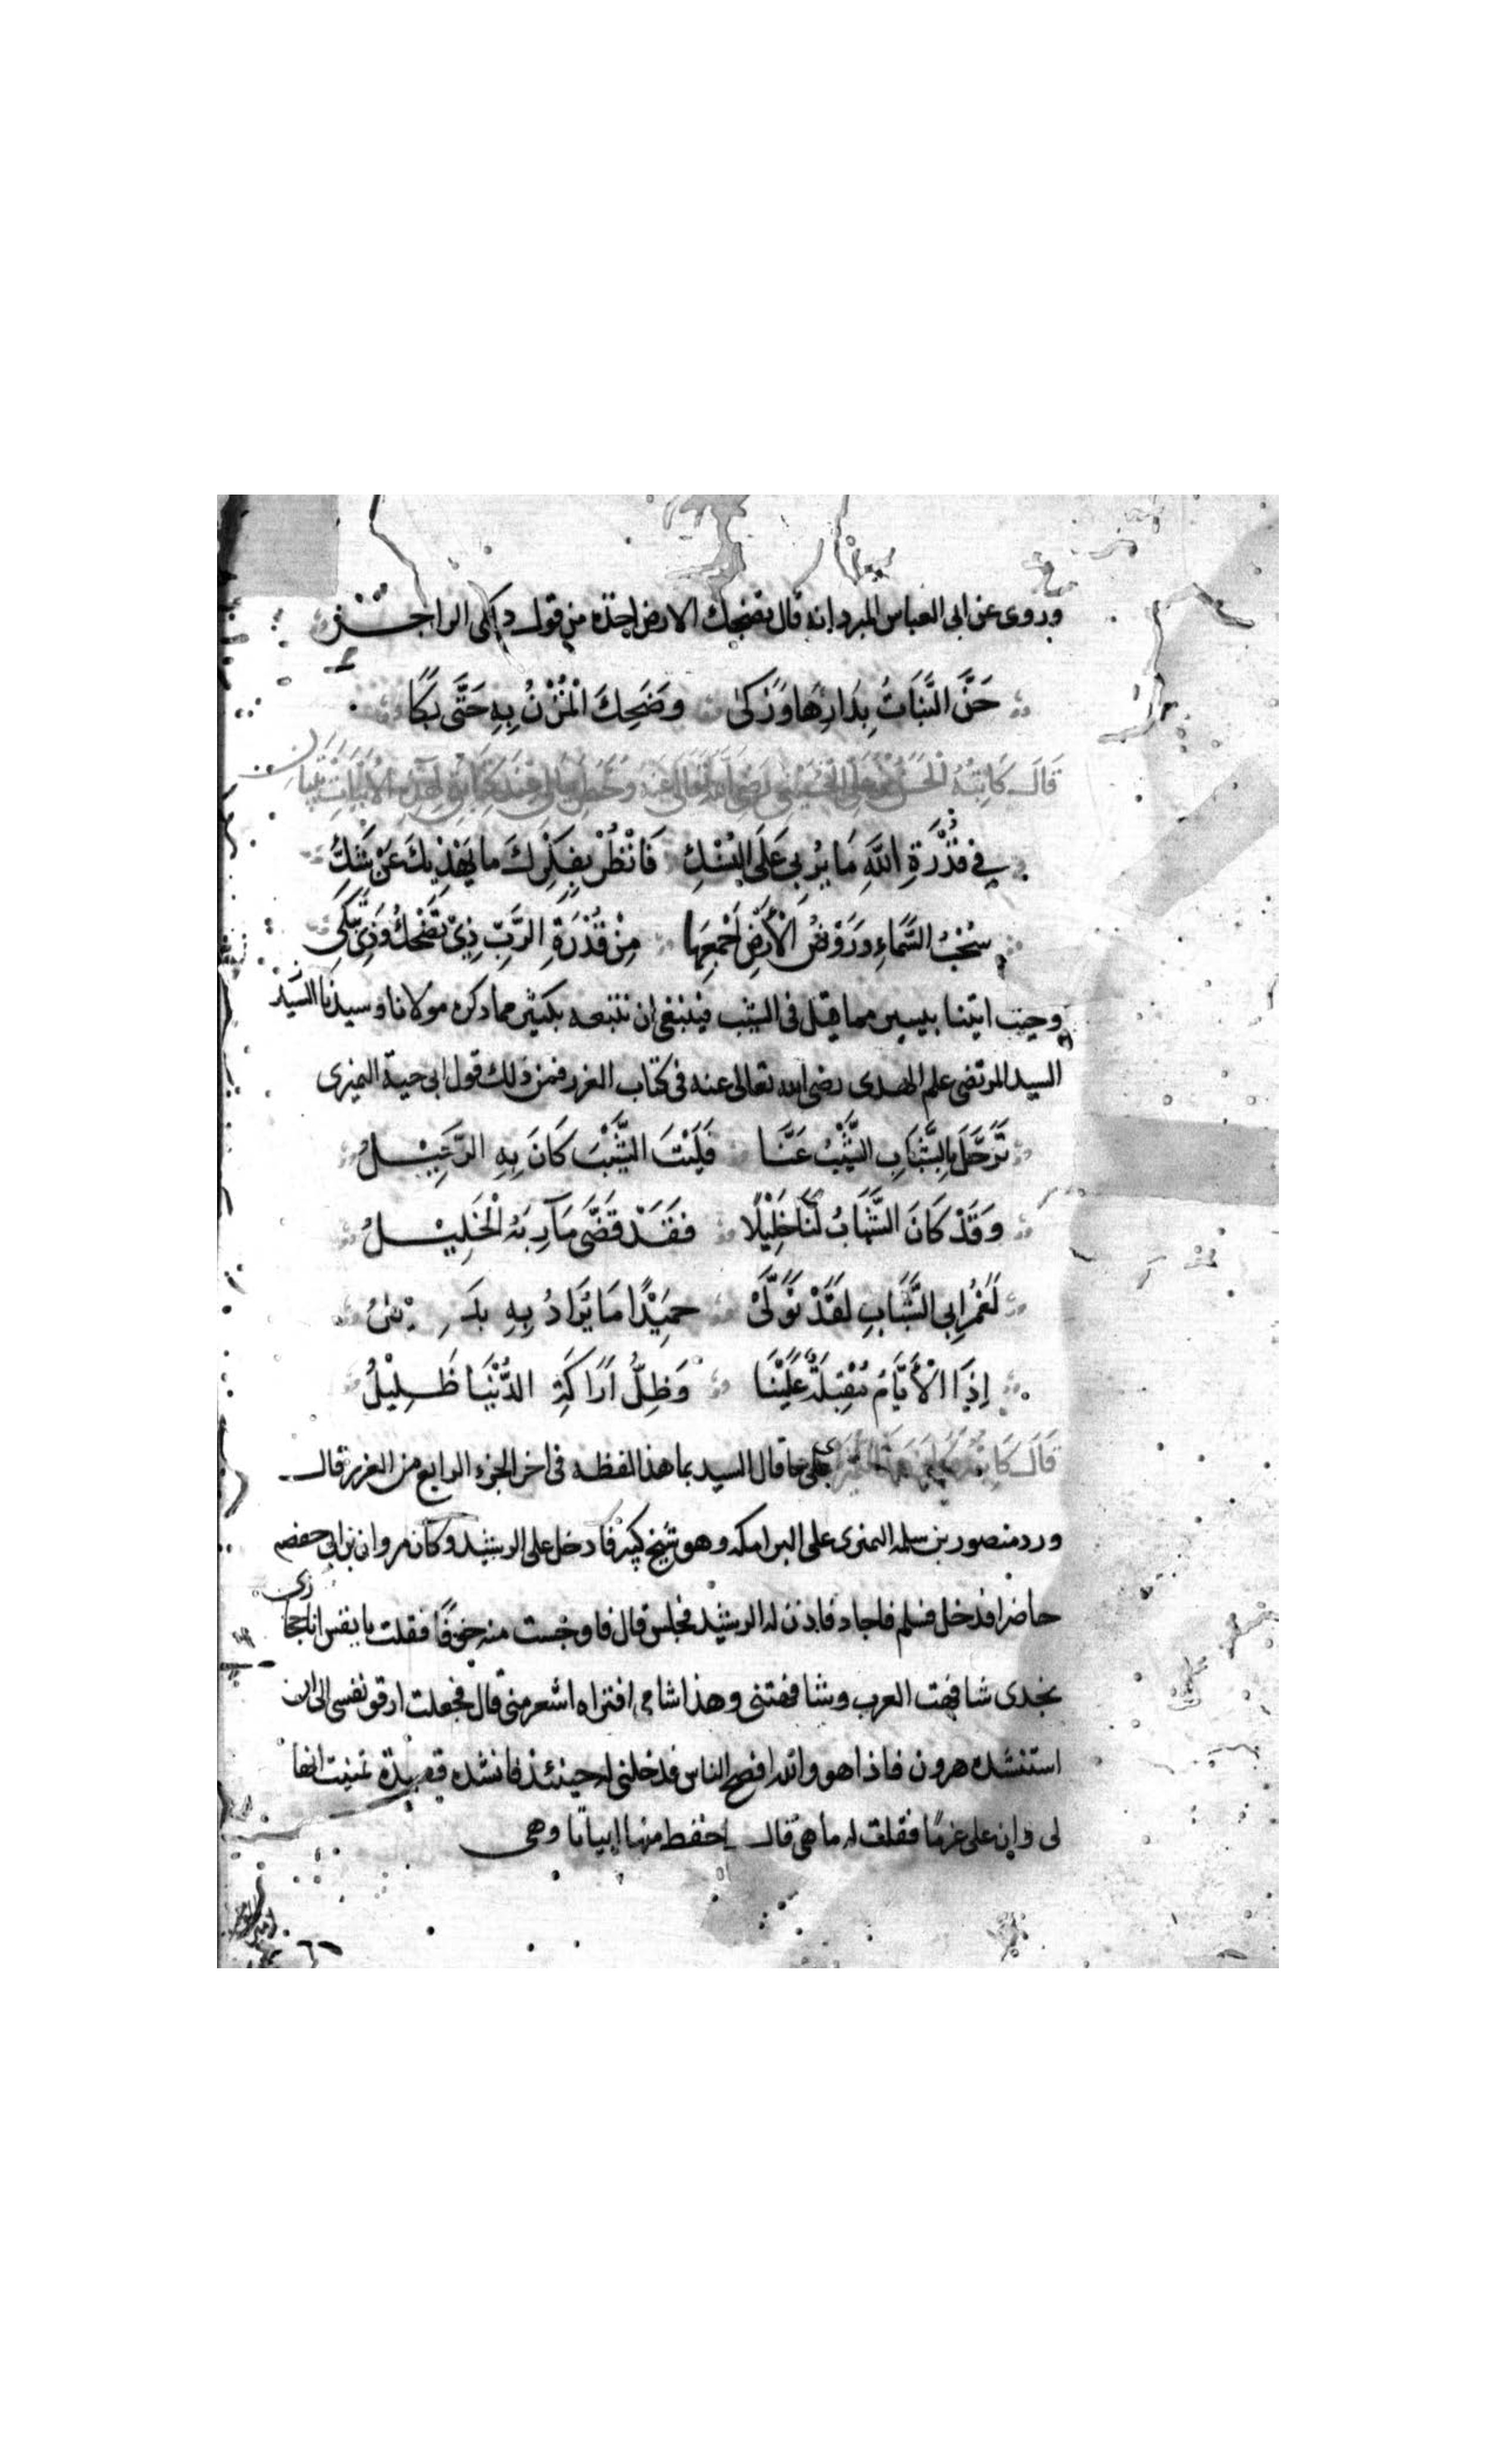 وروى عن ابى العباس المبرد انه قال تضحك الارض اخذه من قول دكى الراجز
حَنَّ النَّبَاتُ بِدَارِهَا وَزَكىٰ وَضَحِكَ الْمُزْنُ بِهِ حَتَّى بَكَا
قَالَ كَاتِبُهُ الْحَسَنُ بْنُ عَلِي رَضِيَ اللّٰهُ تَعَالَى عَنْهُ وَخَطَرَ بِبَالِي عِنْدَ كِتَابَتِي هٰذِهِ الْأَبْيَاتِ بَيْتَانِ
فِي قُدْرَةِ اللّٰهِ مَا يُرْبِي عَلَى النُّسْكِ فَانْظُرْ بِفِكْرِكَ مَا يَهْذِيكَ عَنْ شَكِّ
سُحْبُ السَّمَاءِ وَرَوْضُ الْأَرْضِ أَجْمَعِهَا مِنْ قُدْرَةِ الرَّبِّ ذِي تَضْحَكُ وَذِي تَبْكِي
وحيث اتينا بيسير مما قيل فى الشيب فينبغى ان نتبعه بكثير مما ذكره مولانا وسيدنا السيد
السيد المرتضى علم الهدى رضى الله تعالى عنه فى كتاب الغرر فمن ذلك قول ابى حية النميرى
تَرَحَّلَ بِالشَّبَابِ الشَّيْبُ عَنَّا فَلَيْتَ الشَّيْبَ كَانَ بِهِ الرَّحِيْلُ
وَقَدْ كَانَ الشَّبَابُ لَنَا خَلِيْلًا فَقَدْ قَضَّى مَآرِبَهُ الْخَلِيْلُ
لَعَمْرُ ابِى الشَّبَابِ لَقَدْ تَوَلَّىْ حَمِيْدًا مَا يُرَادُ بِهِ
اِذَا الْأَيَّامُ مُقْبِلَةٌ عَلَيْنَا وَظِلُّ ارَاكَةِ الدُّنْيَا ظَلِيْلُ
قَالَ كَاتِبُهُ على ما قال السيد بما هذا لفظه فى اخر الجزء الرابع من الغرر قال
ورد منصور بن سلمه النمرى على البرامكه وهو شيخ كبير فادخل على الرشيد وكان مروان بن ابى حفصه
حاضرا فدخل فسلم فاجاد فاذن له الرشيد فجلس قال فاوجست منه خوفًا فقلت يا نفس انا حجازى
نجدى شافهت العرب وشافهتنى وهذا شامى افتراه اشعر منى قال فجعلت ارقو نفسى الى ان
استنشده هرون فاذا هو والله افصح الناس فدخلنى له حينئذ فانشده قصيدة تمنيت انها
لى وان على غرمًا فقلت له ما هى قال احفظ منها ابياتا وهى